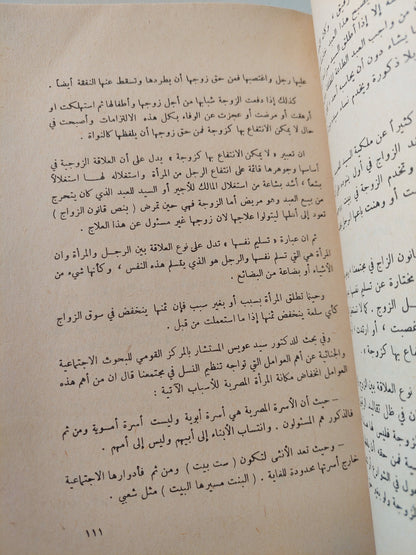 عليها رجل واغتصبها فمن حق زوجها أن يطردها وتسقط عنها النفقة أيضاً .
كذلك إذا دفعت الزوجة شبابها من أجل زوجها وأطفالها ثم استهلكت او
أرهقت أو مرضت أو عجزت عن الوفاء بكل هذه الالتزامات وأصبحت في
حال لا يمكن الانتفاع بها كزوجة فمن حق زوجها أن يلفظها كالنواة .
ان تعبير « لا يمكن الانتفاع بها كزوجة » يدل على أن العلاقة الزوجية في
أساسها وجوهرها قائمة على انتفاع الرجل من المرأة واستغلاله لها استغلالاً
بشعاً ، أشد بشاعة من استغلال المالك للأجير أو السيد للعبد الذي كان يتحرج
من بيع العبد وهو مريض أما الزوجة فهي حين تمرض ( بنص قانون الزواج )
تعود إلى أهلها ليتولوا علاجها لان زوجها غير مسئول عن هذا العلاج .
ثم ان عبارة « تسلم نفسها » تدل على نوع العلاقة بين الرجل والمرأة وان
المرأة هي التي تسلم نفسها والرجل هو الذي يتسلم هذه النفس ، وكأنها شيء من
الأشياء أو بضاعة من البضائع .
وحينما تطلق المرأة بسبب أو بغير سبب فإن ثمنها ينخفض في سوق الزواج
كأي سلعة ينخفض ثمنها إذا ما استعملت من قبل .
وفي بحث للدكتور سيد عويس المستشار بالمركز القومي للبحوث الاجتماعية
والجنائية عن أهم العوامل التي تواجه تنظيم النسل في مجتمعنا قال ان من أهم هذه
العوامل انخفاض مكانة المرأة المصرية للأسباب الآتية :
– حيث أن الأسرة المصرية هي أسرة أبوية وليست أسرة أموية ومن ثم
فالذكور هم المسئولون . وانتساب الأبناء إلى أبيهم وليس إلى أمهم .
– وحيث تعد الأنثى لتكون ( ست بيت ) ومن ثم فأدوارها الاجتماعية
خارج أسرتها محدودة للغاية . ( البنت مسيرها البيت ) مثل شعبي .
١١١